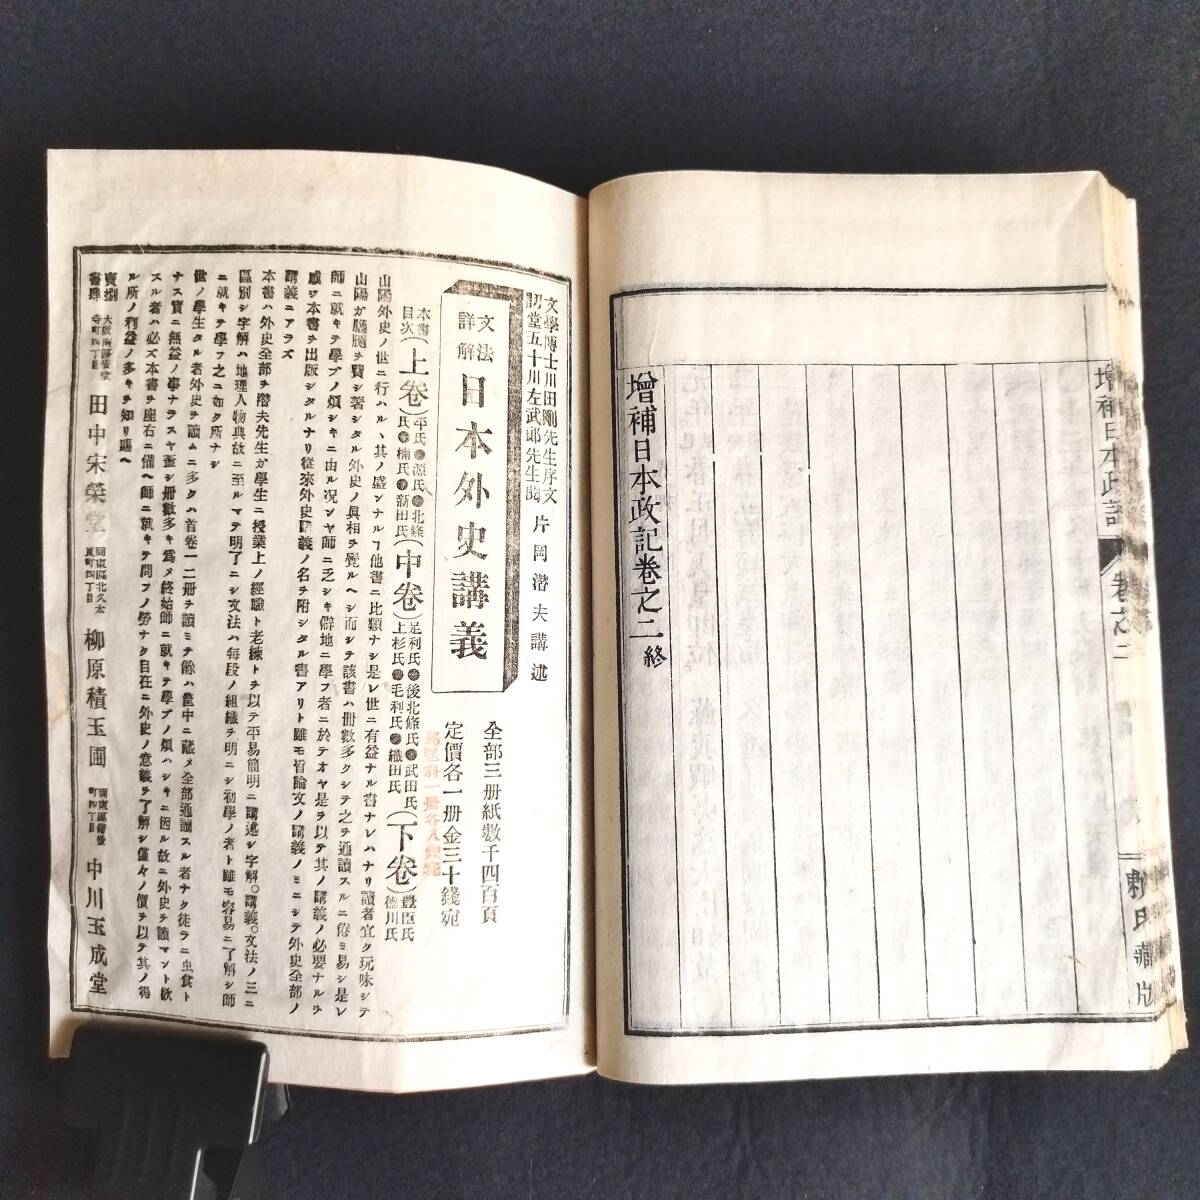 増補日本政記
卷之二
頼氏藏版
増補日本政記卷之二終
文學博士川田剛先生序文
訒堂五十川左武郎先生閲
片岡潜夫講述
文法
詳解
日本外史講義
全部三册紙數千四百頁
定價各一册金三十錢宛
郵送料一册各八錢宛
本書
目次
(上卷)
平氏●源氏●北條
氏●楠氏●新田氏
(中卷)
足利氏●後北條氏●武田氏
上杉氏●毛利氏●織田氏
(下卷)
豐臣氏
德川氏
山陽外史ノ世ニ行ハルヽ其ノ盛ンナルヿ他書ニ比類ナシ是レ世ニ有益ナル書ナレハナリ讀者宜ク玩味シテ
山陽ガ腦膸ヲ費シ著シタル外史ノ眞相ヲ覺ルヘシ而シテ該書ハ册數多クシテ之ヲ通讀スルニ倦ミ易シ是レ
師ニ就キテ學ブノ煩シキニ由ル况ンヤ師ニ乏シキ僻地ニ學フ者ニ於テオヤ是ヲ以テ其ノ講義ノ必要ナルヲ
感ジ本書ヲ出版シタルナリ從來外史講義ノ名ヲ附シタル書アリト雖モ皆論文ノ講義ノミニシテ外史全部ノ
講義ニアラズ
本書ハ外史全部ヲ潜夫先生ガ學生ニ授業上ノ經驗ト老練トヲ以テ平易簡明ニ講述シ字解。講義。文法ノ三ニ
區別シ字解ハ地理人物典故ニ至ルマテ明了ニシ文法ハ每段ノ組織ヲ明ニシ初學ノ者ト雖モ容易ニ了解シ師
ニ就キテ學フ之ニ如ク所ナシ
世ノ學生タル者外史ヲ讀ムニ多クハ首卷一二册ヲ讀ミテ餘ハ筐中ニ藏メ全部通讀スル者ナク徒ラニ虫食ト
ナス實ニ無益ノ事ナラスヤ蓋シ册數多キ爲メ終始師ニ就キテ學ブノ煩ハシキニ因ル故ニ外史ヲ讀マント欲
スル者ハ必ズ本書ヲ座右ニ備ヘ師ニ就キテ問フノ勞ナク自在ニ外史ノ意義ヲ了解シ僅々ノ價ヲ以テ其ノ得
ル所ノ利益ノ多キヲ知リ賜ヘ
賣捌
書肆
寺町四丁目
田中宋榮堂
同東區北久太
郎町四丁目
柳原積玉圃
同東區備後
町四丁目
中川玉成堂